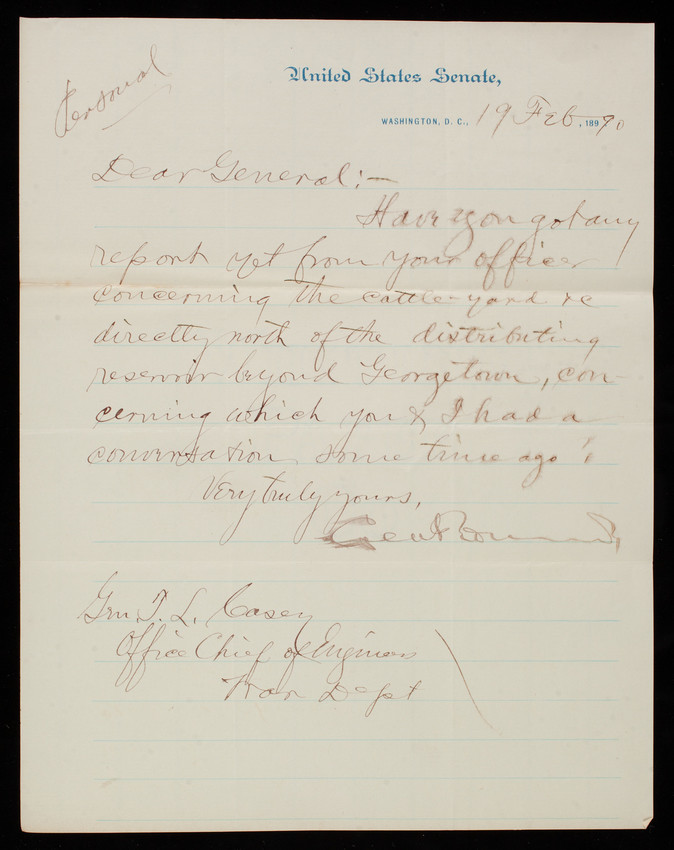 Personal
United States Senate,
WASHINGTON, D. C., 19 Feb, 1890
Dear General:—
Have you got any
report yet from your officer
concerning the cattle-yard &c
directly north of the distributing
reservoir beyond Georgetown, con-
cerning which you & I had a
conversation some time ago?
Very truly yours,
Gen T. L. Casey
Office Chief of Engineers
War Dept